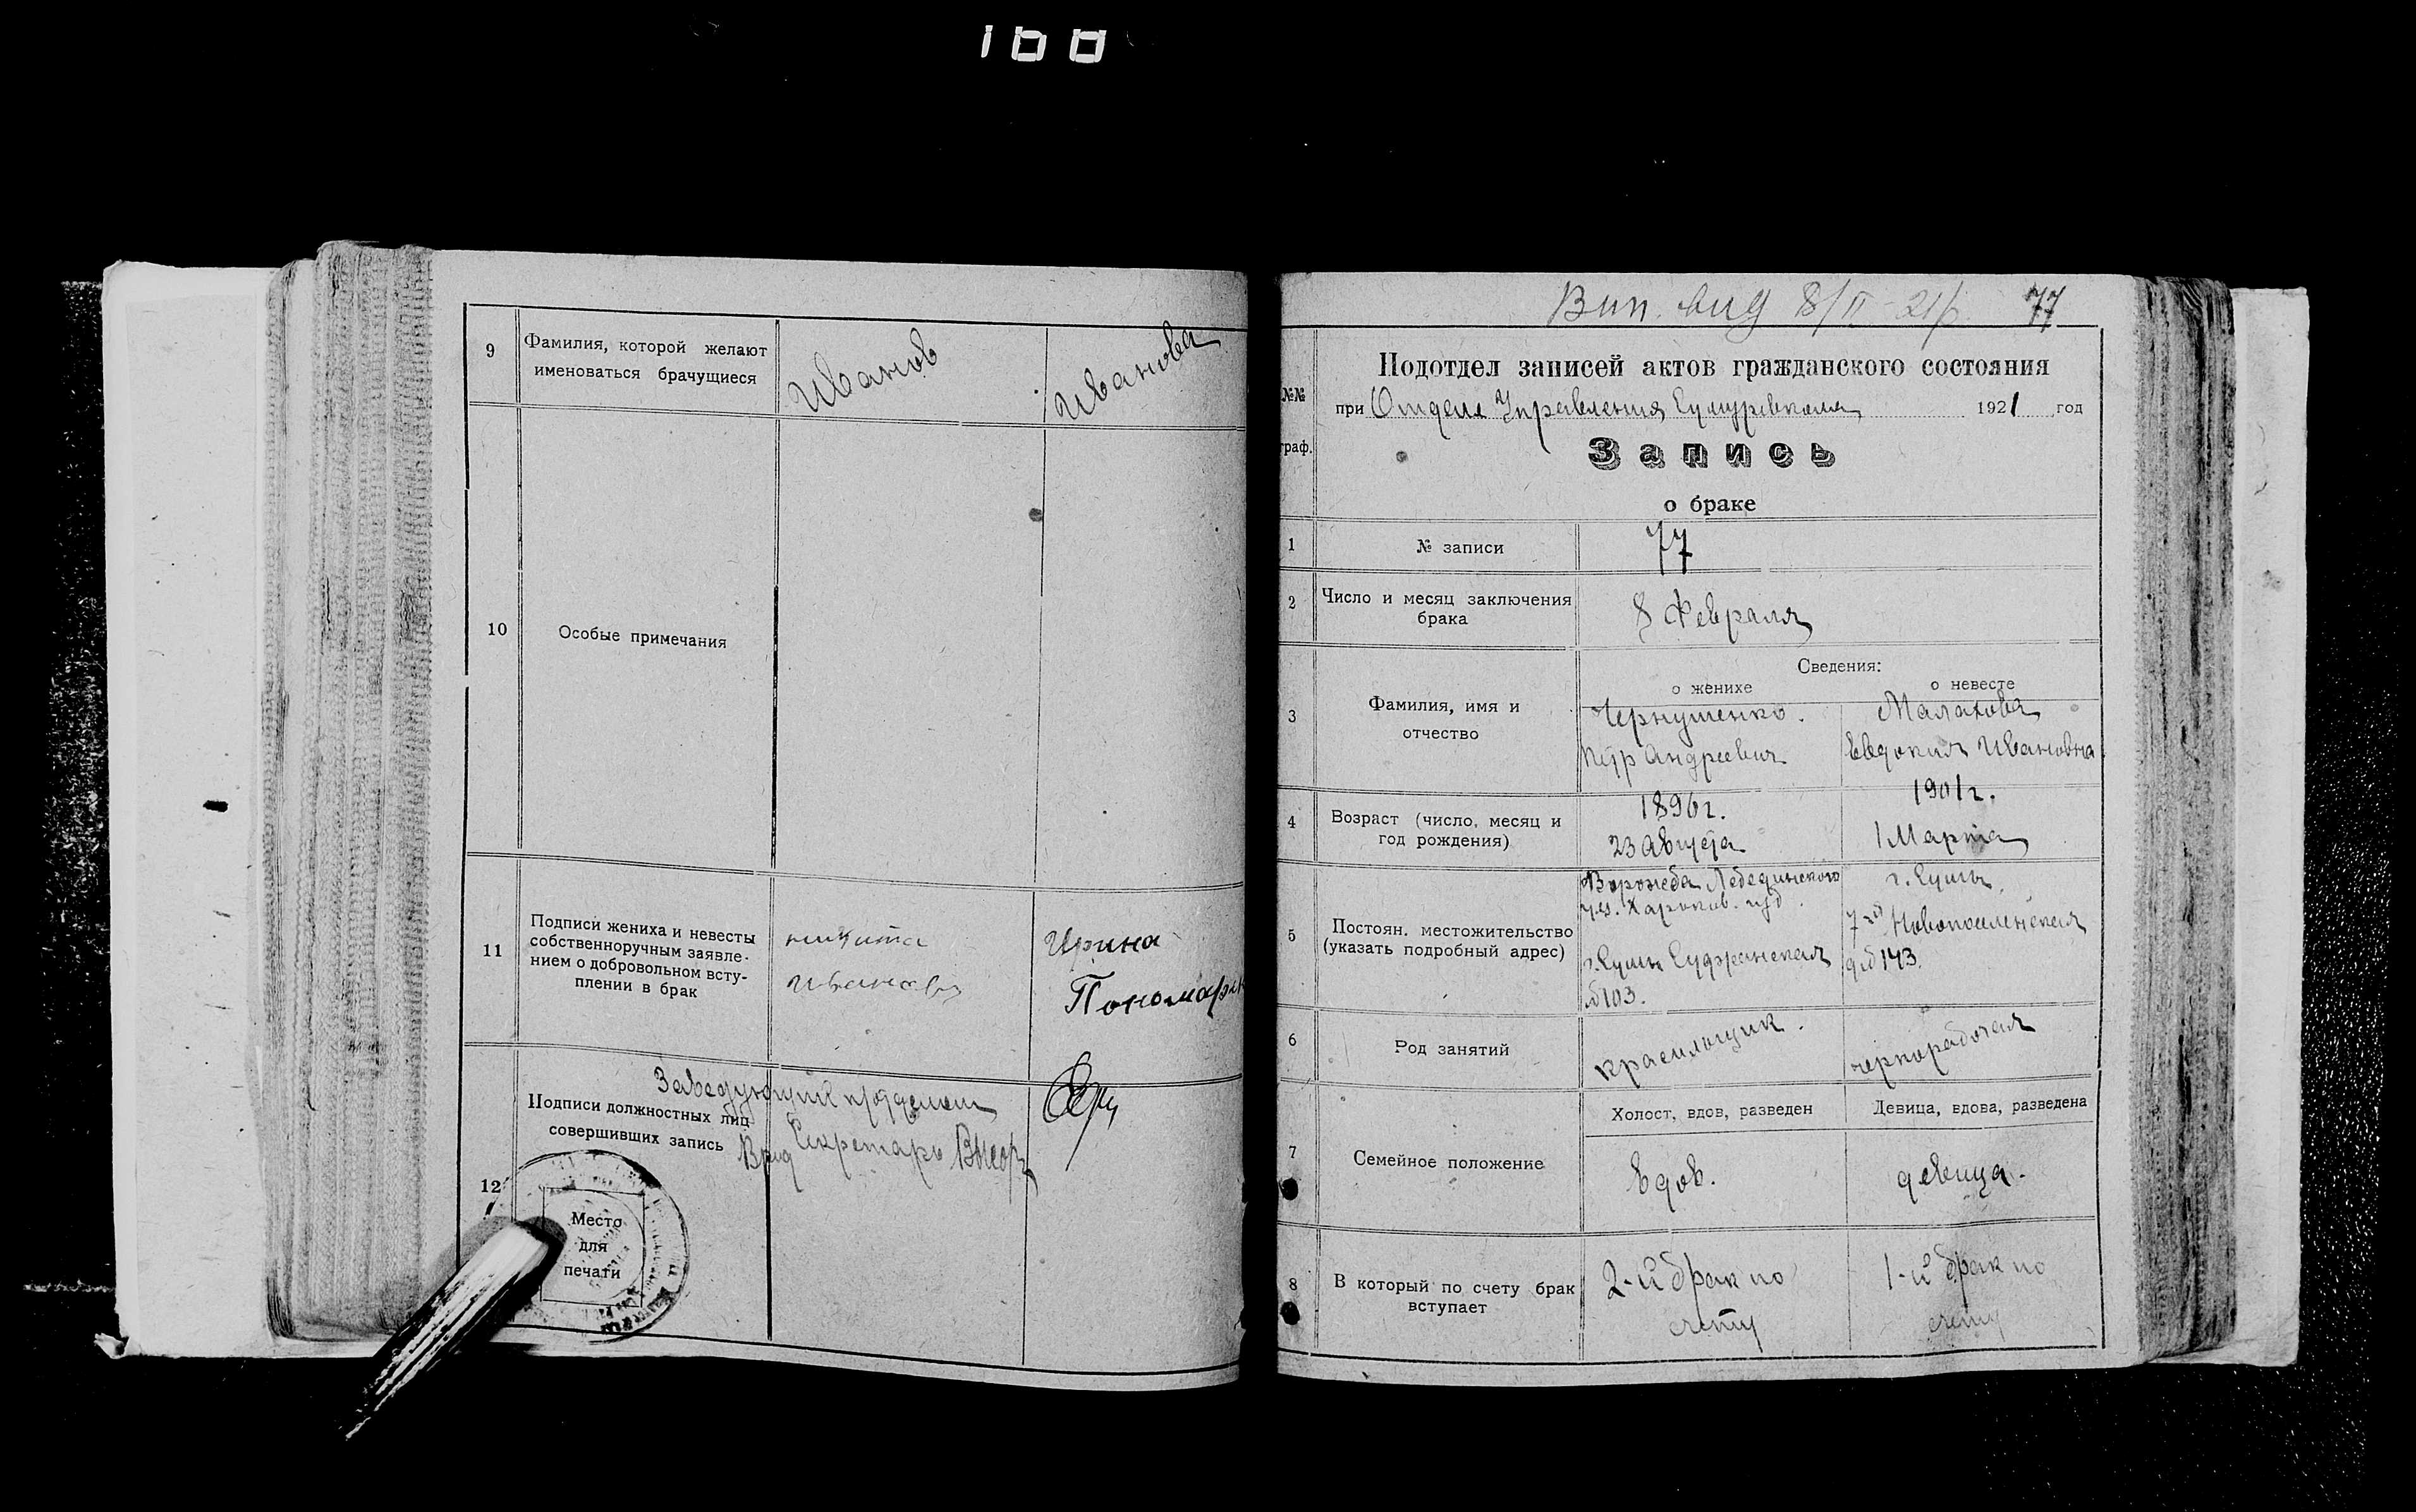 100
9
Фамилия, которой желают
именоваться брачущиеся
Иванов
Иванова
10
Особые примечания
11
Подписи жениха и невесты
собственноручным заявле-
нием о добровольном всту-
плении в брак
никита
Ирина
12
Заведующий
Подписи должностных лиц
совершивших запись
Секретарь
Место
для
печати
Вип. вид 8/II-21р. 77
№№
граф.
Подотдел записей актов гражданского состояния
при Отделе Управления 1921 год
Запись
о браке
1
№ записи
77
2
Число и месяц заключения
брака
8 Февраля
Сведения:
о женихе
о невесте
3
Фамилия, имя и
отчество
Чернушенко.
Петр Андреевич
Малахова
Евдокия Ивановна
4
Возраст (число, месяц и
год рождения)
1896 г.
23 Августа
1901 г.
1 Марта
5
Постоян. местожительство
(указать подробный адрес)
Ворожба Лебединского
г. Сумы Суджанская
№103.
г. Сумы,
Новопоселенская
№143.
6
Род занятий
красильщик.
чернорабочая
7
Семейное положение
Холост, вдов, разведен
Девица, вдова, разведена
вдов.
девица.
8
В который по счету брак
вступает
2-й брак по
счету
1-й брак по
счету